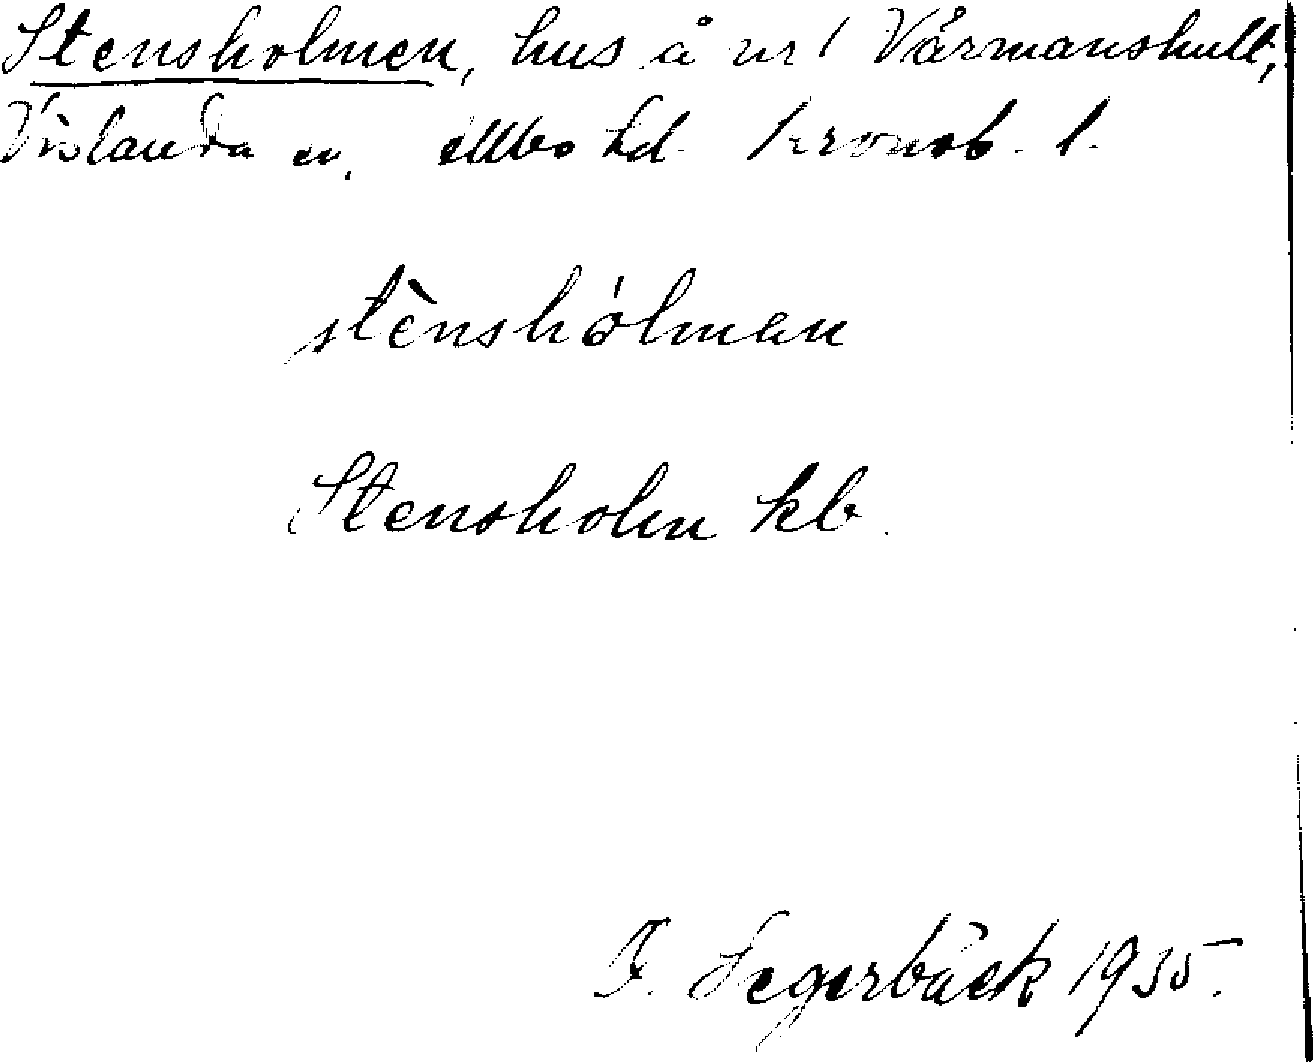 Stensholmen, hus å nr 1 Vårmanshult,
Vislanda sn, Allbo hd. Kronob. l.
stènshólman
Stensholm kb.
F. Segerbäck 1935.